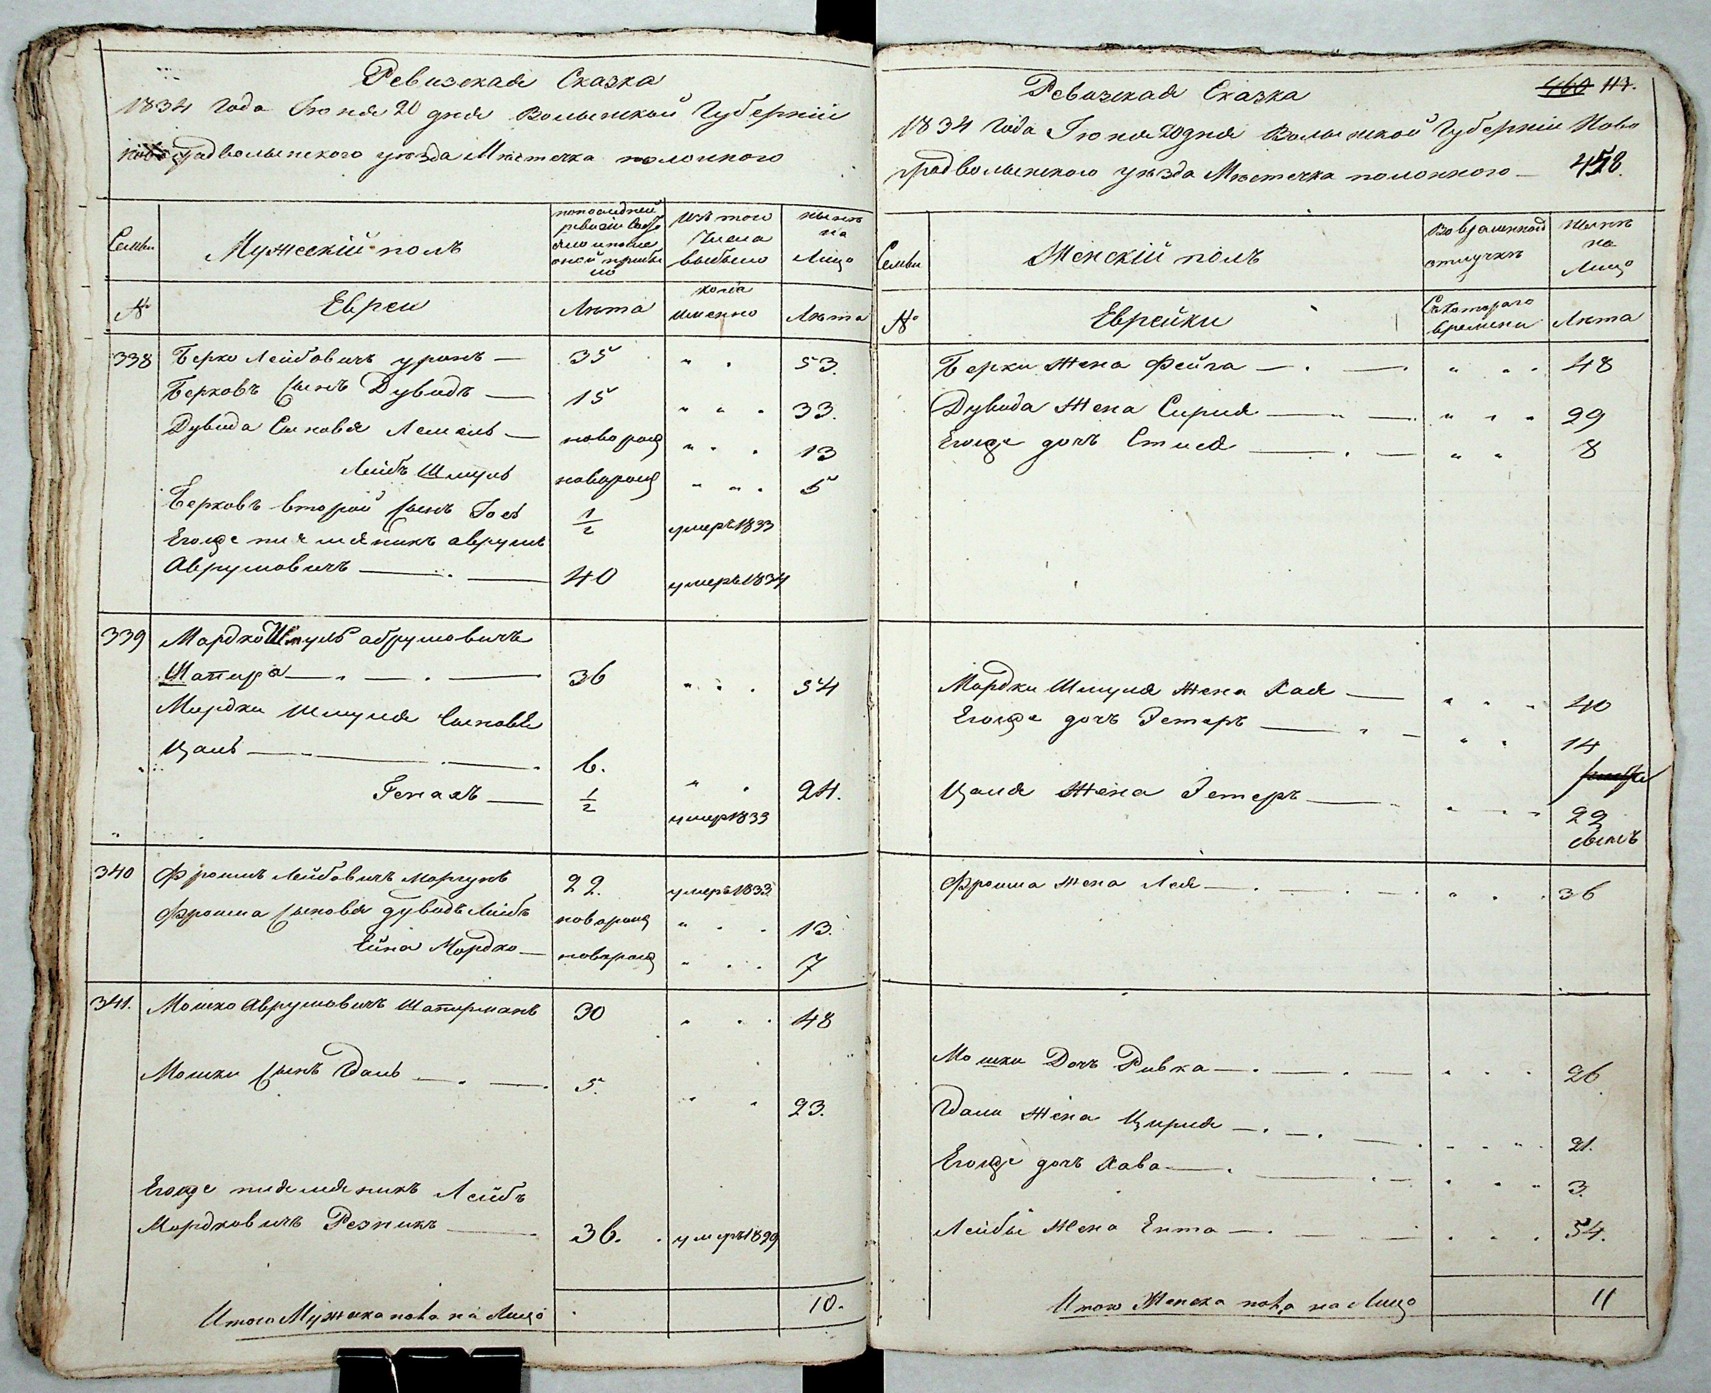 Ревизская Сказка
1834 Года Іюня 20 дня Волынской Губерніи
Новоградволынского уезда Мѣстечка полонного
Семьи
Мужескій полъ
по последней ревизіи
Изъ того числа выбыло
нынѣ на Лицо
№
Евреи
Лѣта
когда именно
Лѣта
338 Берко Лейбовичъ — 35 " " 53.
Берковъ сынъ Дувидъ — 15 " " " 33.
Дувида Сыновья Лемель — новорож " " " 13
Лейбъ Шмуль новорож " " " 5
Берковъ второй сынъ Іось 1/2 умеръ 1833
Егожъ племяникъ аврумъ
Аврумовичъ — 40 умеръ 1834
339 Мордко Шмуль абрумовичъ
Шапира — 36 " " " 54
Мордки Шмуля сыновья
Цаль — 6. " " 24.
Генахъ — 1/2 умеръ 1833
340 Фроимъ Лейбовичъ Моргунъ 22. умеръ 1833
Фроима сыновья дувидъ Лейбъ новорож " " " 13.
Мордко — новорож " " " 7
341. Мошко Аврумовичъ Шапирманъ 30 " " " 48
Мошки сынъ Даль — 5. " " 23.
Егожъ племяникъ Лейбъ
Мордковичъ Резникъ — 36. умеръ 1829
Итого Мужска пола на Лицо 10.
Ревизская Сказка
460 113.
1834 Года Іюня 20 дня Волынской Губерніи Ново
градволынского уезда Мѣстечка полонного — 458.
Семьи
Женскій полъ
Во временной отлучкѣ
нынѣ на Лицо
№
Еврейки
Съ котораго времени
Лѣта
Берки Жена Фейга — " " " 48
Дувида Жена Сирля — " " " 29
Егожъ дочь — " " 8
Мордки Шмуля Жена Хая — " " " 40
Егожъ дочь Эстеръ — " " 14
Цаля Жена Эстеръ — " " " 22
Фроима Жена Лея — " " " 36
Мошки Дочь Ривка — " " " 26
Даля Жена Цирля — " " " 21.
Егожъ дочь Хава — " " " 3.
Лейбы Жена Ента — " " " 54.
Итого Женска пола на Лицо 11